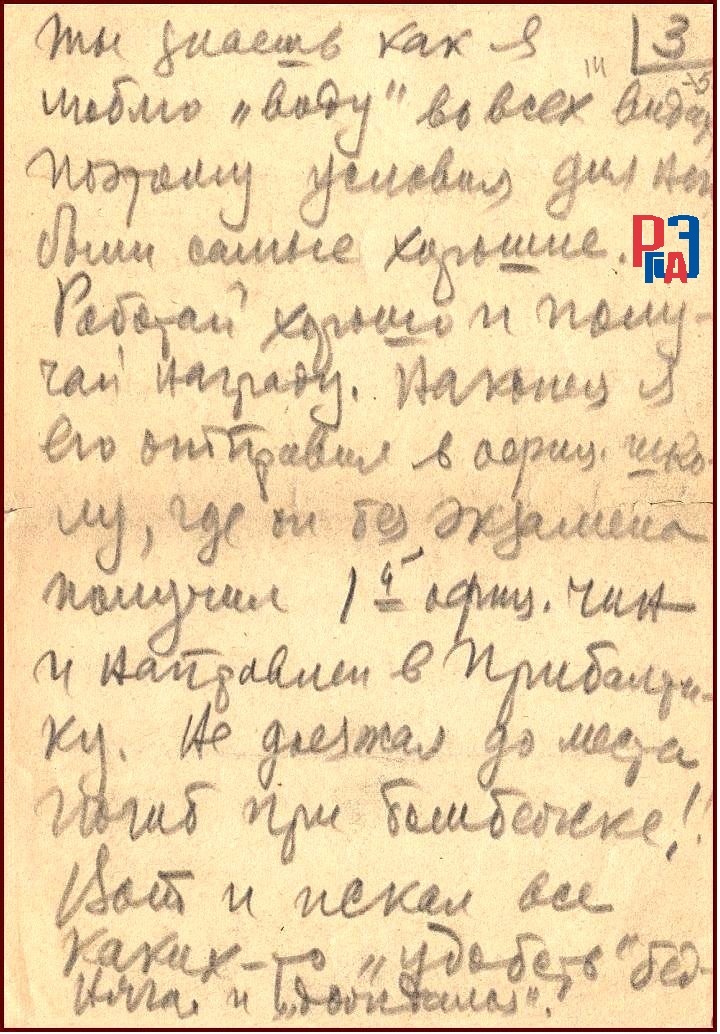 Ты знаешь как я
3
люблю „воду" во всех видах
Поэтому условия для
были самые хорошие.
РГАЭ
Работай хорошо и полу-
чай награду. Наконец я
его отправил в офиц. шко-
лу, где он без экзамена
получил 1й офиц. чин
и направлен в Прибалти-
ку. Не доезжая до места
погиб при бомбежке!!
Вот и искал все
каких-то „удобств" бед-
няга и